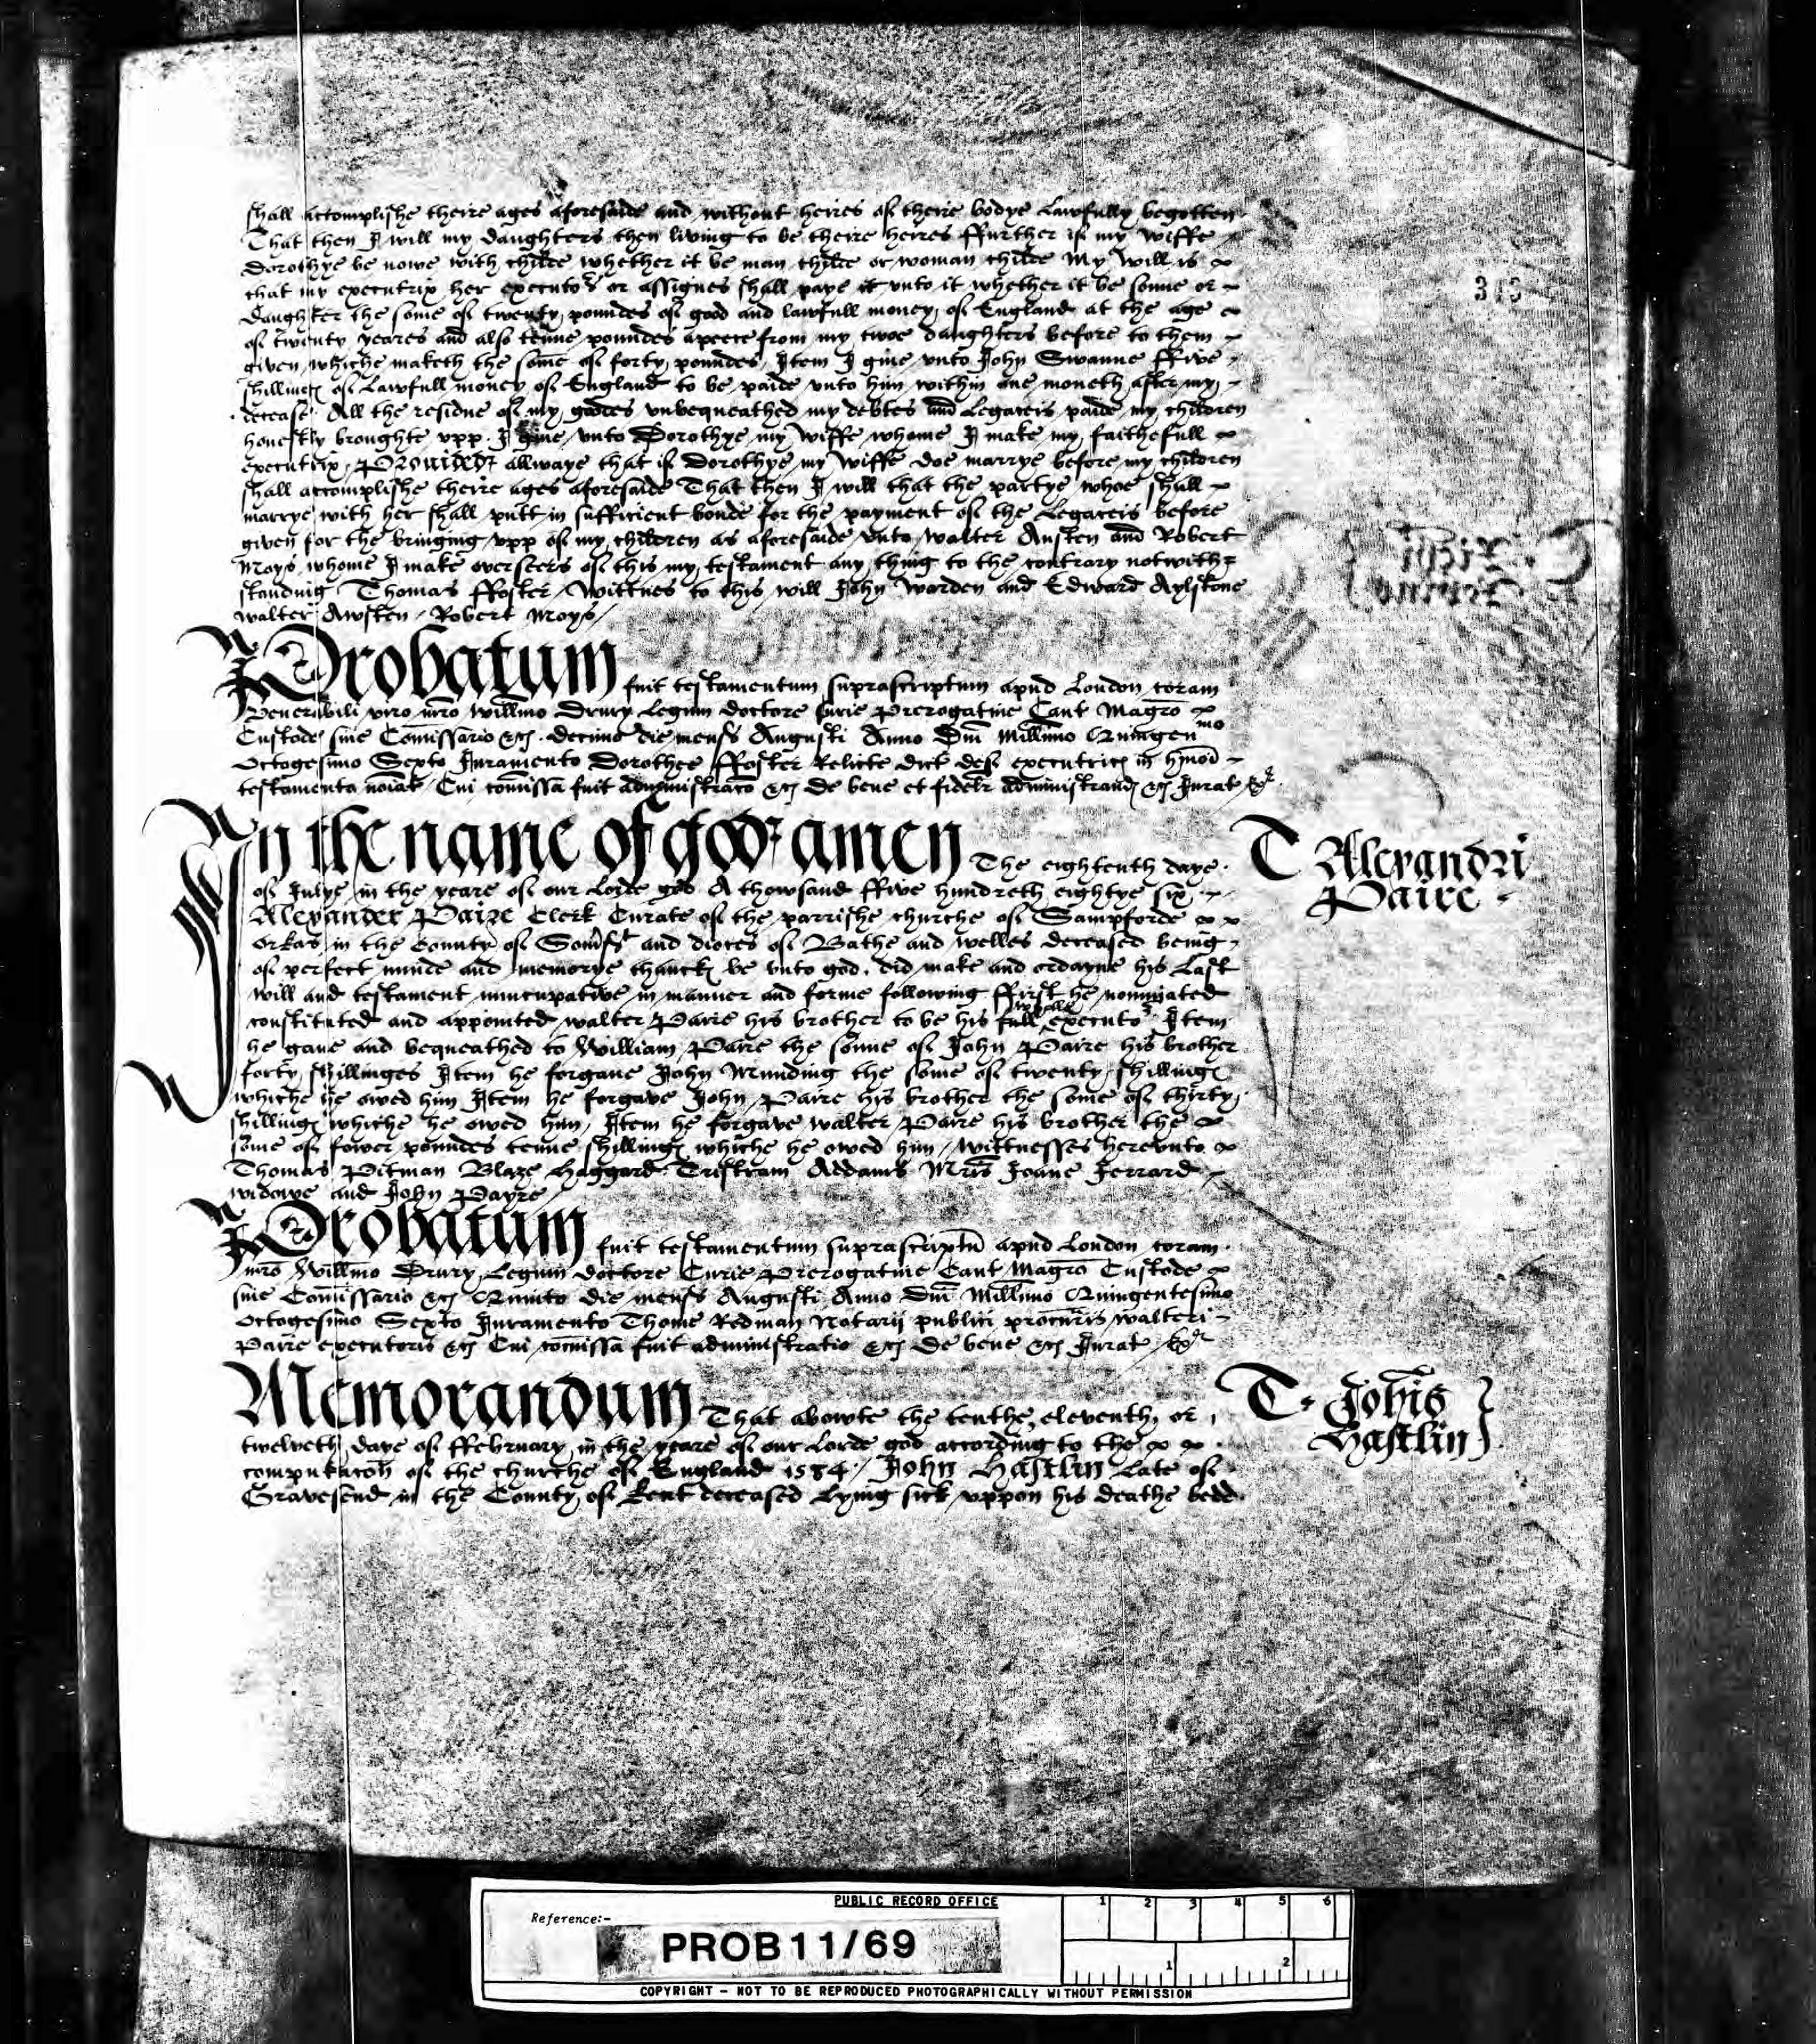 shall accomplishe theire ages aforesaide and without heires of theire bodye lawfully begotten
That then I will my daughters then living to be theire heires ffurther if my wiffe
Dorothye be nowe with childe whether it be man childe or woman childe My will is
that my executrix her executors or assignes shall paye it unto it whether it be sonne or
daughter the some of twenty poundes of good and lawfull money of England at the age
of twenty yeares and also tenne poundes apeece from my twoe daughters before to them
given, whiche maketh the some of forty poundes, Item I give unto John Swanne ffive
shillings of lawfull money of England to be paide unto him within one moneth after my
decease. All the residue of my goodes unbequeathed my debtes and legaceis paide my children
honestly broughte upp. I give unto Dorothye my wiffe whome I make my faithefull
executrix, Provided allwaye that if Dorothye my wiffe doe marrye before my children
shall accomplishe theire ages aforesaide That then I will that the partye whoe shall
marrye with her shall putt in sufficient bonde for the payment of the legaceis before
given for the bringing upp of my children as aforesaide unto walter Austen and Robert
Moys whome I make overseers of this my testament any thing to the contrary notwith=
standing Thomas ffoster, Wittnes to this will John Worden and Edward Aylstone
walter Awsten, Robert Moys/
Probatum fuit testamentum suprascriptum apud London coram
Venerabili viro mro Willmo Drury Legum doctore Curie Prerogative Cant Magro
Custode sive Comissario &c. decimo die mens Augusti Anno Dni Millimo Quingenmo
Octogesimo Sexto Iuramento Dorothee ffoster Relicte dict def executricis in hmoi
testamento noiat, Cui comissa fuit administraco &c De bene et fidelr administrand &c Iurat
315
In the name of god amen The eightenth daye
of Julye in the yeare of our Lorde god A thowsand ffive hundreth eightye six
Alexander Paire Clerk Curate of the parrishe churche of Sampforde
orkas in the County of Somst and dioces of Bathe and welles deceased being
of perfect minde and memorye thancks be unto god, did make and ordayne his last
will and testament nuncupative in manner and forme following ffirst he nominated
constituted and appointed walter Paire his brother to be his full executor Item
he gave and bequeathed to William Paire the sonne of John Paire his brother
forty shillinges Item he forgave John Munding the some of twenty shillings
whiche he owed him Item he forgave John Paire his brother the some of thirty
shillings whiche he owed him, Item he forgave walter Paire his brother the
some of fower poundes tenne shillings whiche he owed him, wittnesses hereunto
Thomas Pitman Blaze Haggard Tristram Addams Mris Joane Jerrard
widowe and John Payre/
T Alexandri
Paire
Probatum fuit testamentum suprascriptu apud London coram
mro Willmo Drury Legum doctore Curie Prerogative Cant Magro Custode
sive Comissario &c Quinto die mens Augusti Anno Dni Millimo Quingentesimo
Octogesimo Sexto Iuramento Thome Redman Notarii publici procuris walteri
Paire executoris &c Cui comissa fuit administratio &c De bene &c Iurat
Memorandum That abowte the tenthe, eleventh, or
twelveth daye of ffebruary in the yeare of our Lorde god according to the
computacon of the churche of England 1584, John Hastlin late of
Gravesend in the County of kent deceased lying sick uppon his deathe bedd
T. Johis
Hastlin
PUBLIC RECORD OFFICE
Reference:-
PROB 11/69
1 2 3 4 5 6
1 2
COPYRIGHT - NOT TO BE REPRODUCED PHOTOGRAPHICALLY WITHOUT PERMISSION